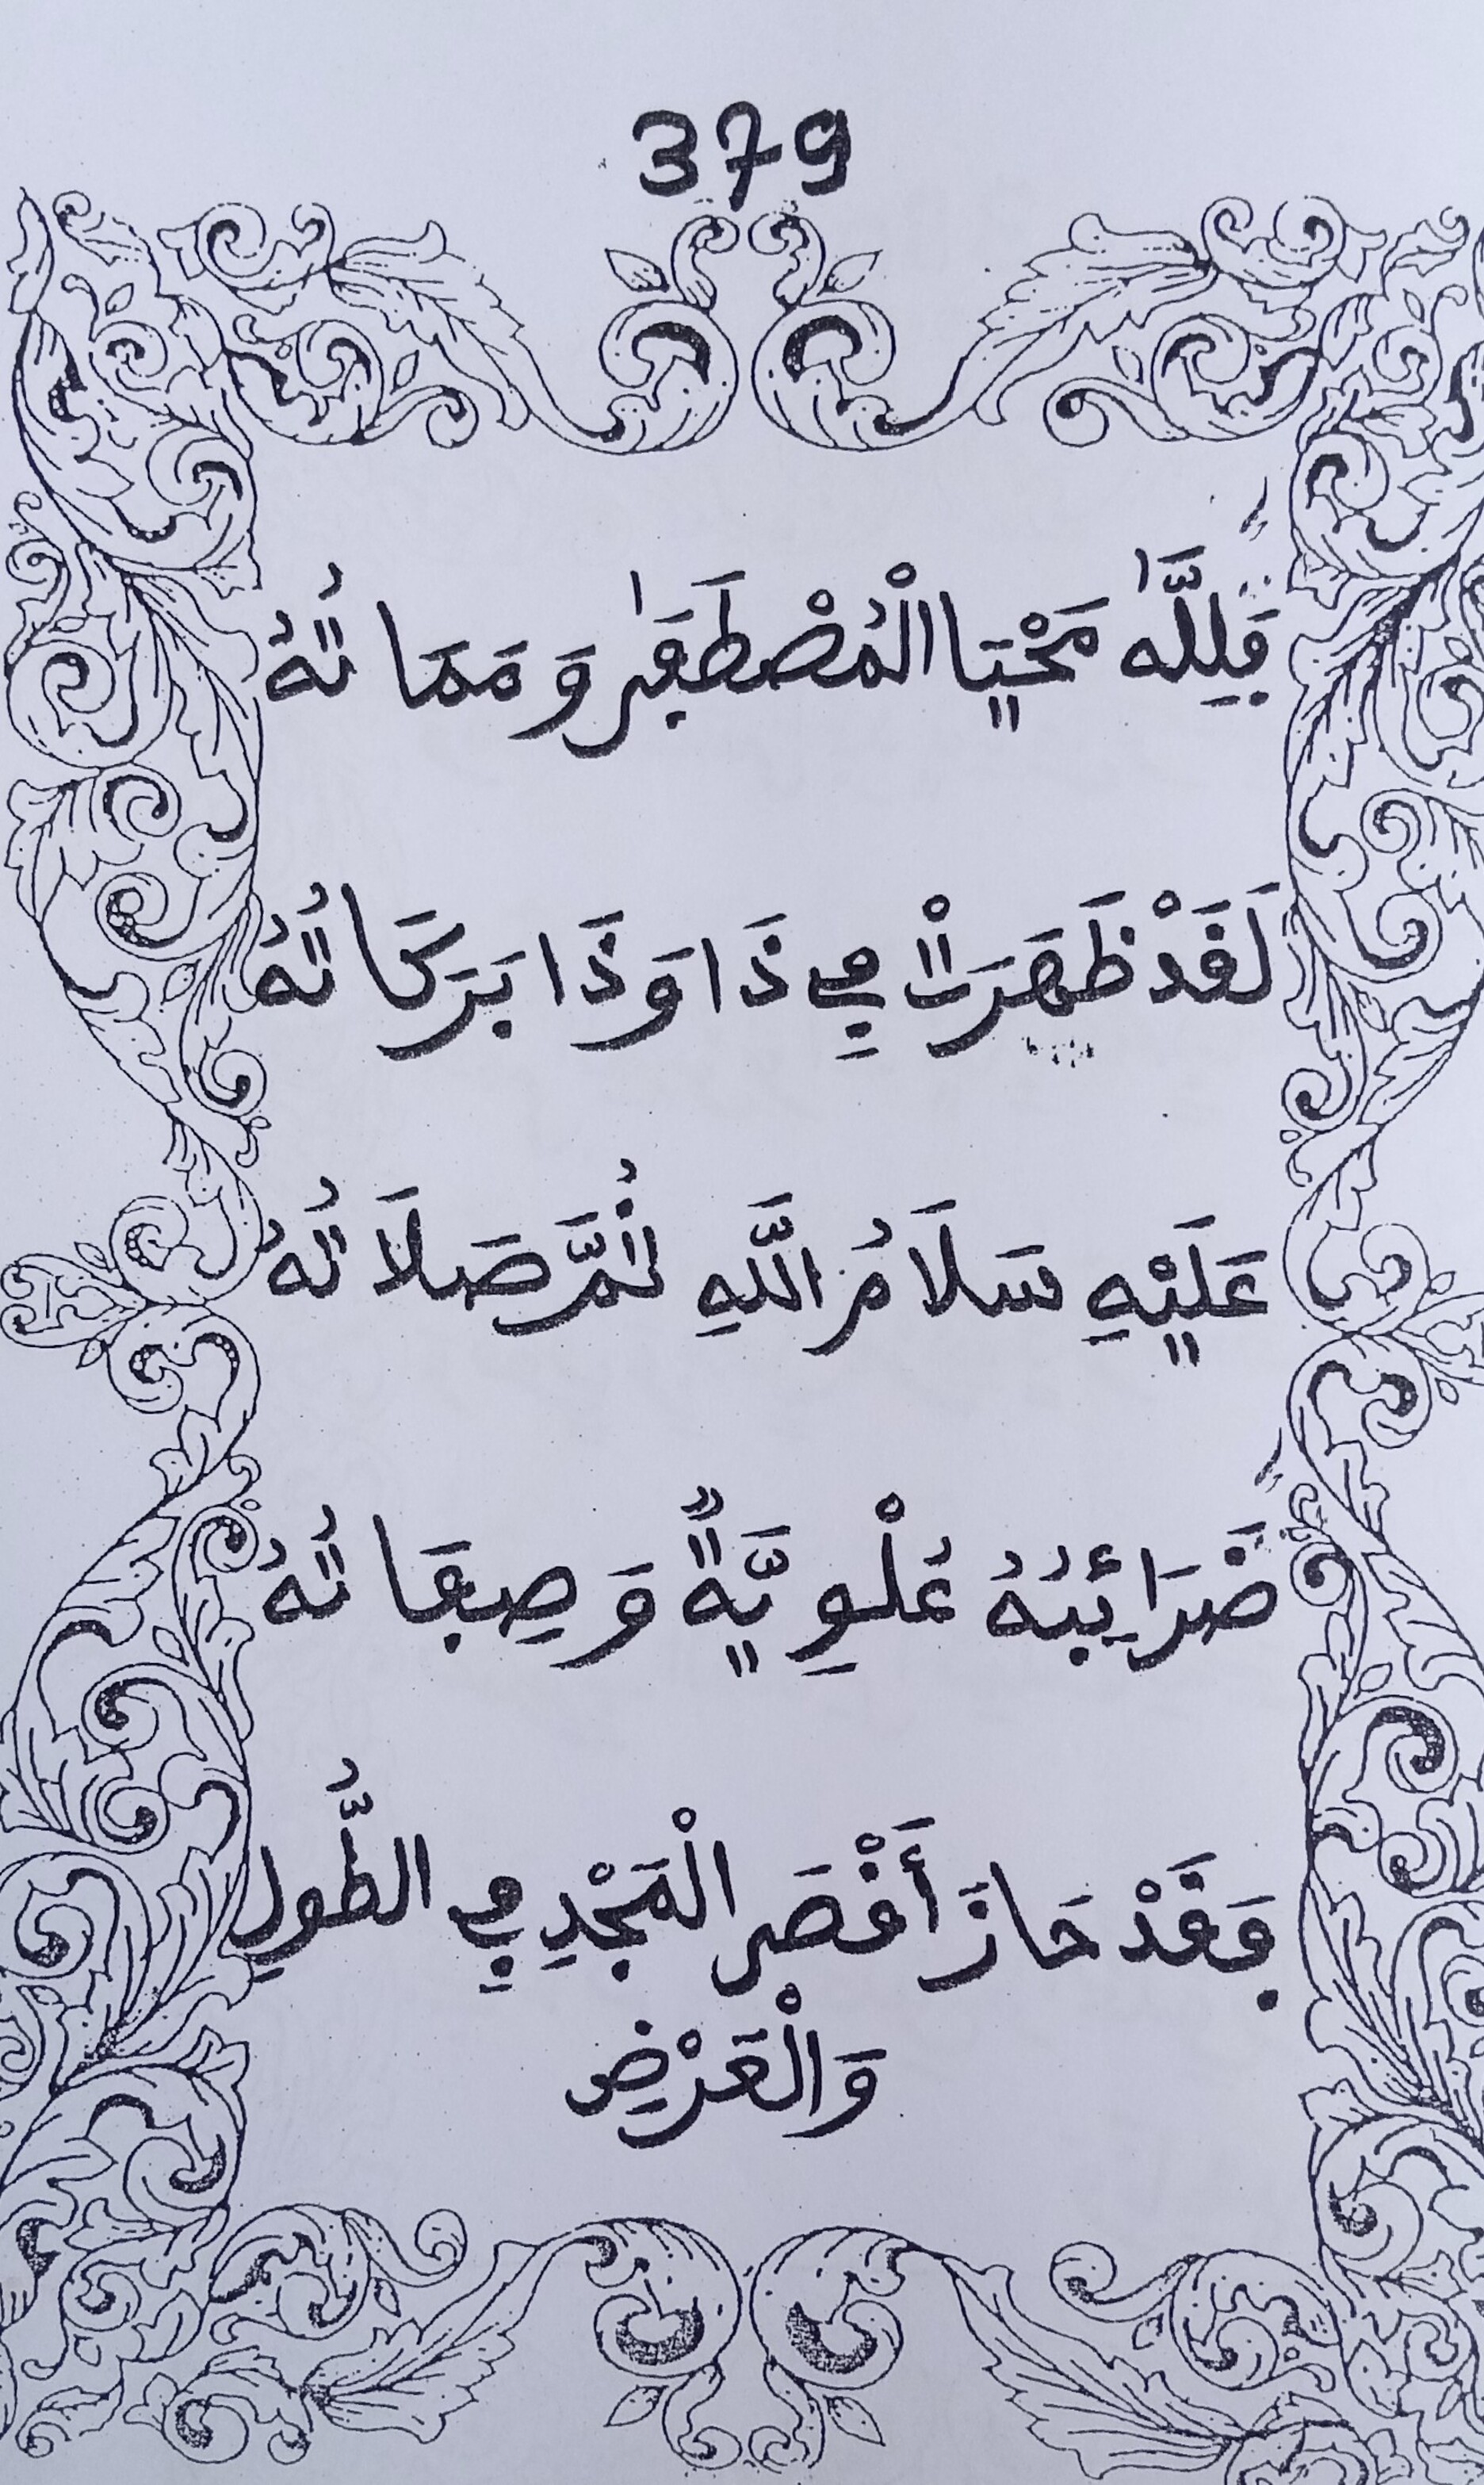 379
فَلِلَّهِ مَحْيَا الْمُصْطَفَىٰ وَمَمَاتُهُ
لَقَدْ ظَهَرَتْ فِي ذَا وَذَا بَرَكَاتُهُ
عَلَيْهِ سَلَامُ اللَّهِ ثُمَّ صَلَاتُهُ
ضَرَائِبُهُ عُلْوِيَّةٌ وَصِفَاتُهُ
فَقَدْ حَازَ أَقْصَى الْمَجْدِ فِي الطُّولِ
وَالْعَرْضِ